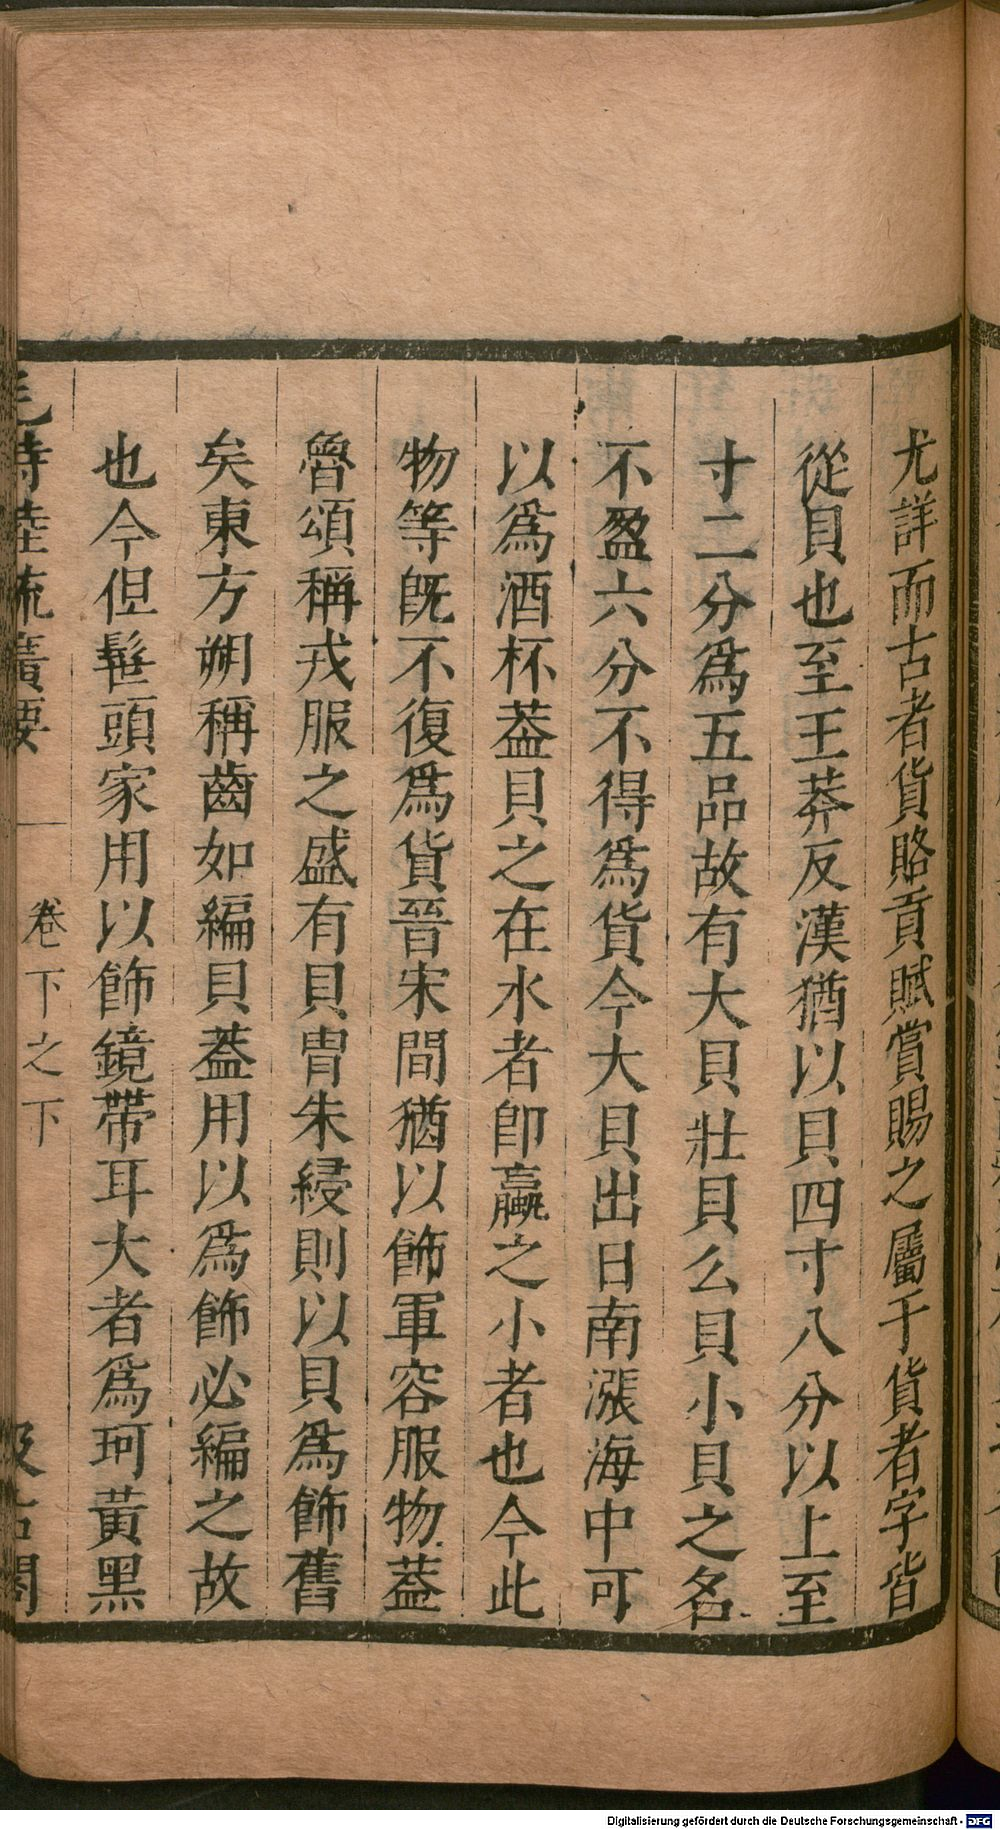 尤詳而古者貨賂貢賦賞賜之屬于貨者字皆
從貝也至王莽反漢猶以貝四寸八分以上至
寸二分爲五品故有大貝壯貝么貝小貝之名
不盈六分不得爲貨今大貝出日南漲海中可
以爲酒杯葢貝之在水者卽蠃之小者也今此
物等旣不復爲貨晉宋間猶以飾軍容服物葢
魯頌稱戎服之盛有貝冑朱綅則以貝爲飾舊
矣東方朔稱齒如編貝葢用以爲飾必編之故
也今但髢頭家用以飾鏡帶耳大者爲珂黃黑
毛詩陸疏廣要 卷下之下 汲古閣
Digitalisierung gefördert durch die Deutsche Forschungsgemeinschaft - DFG